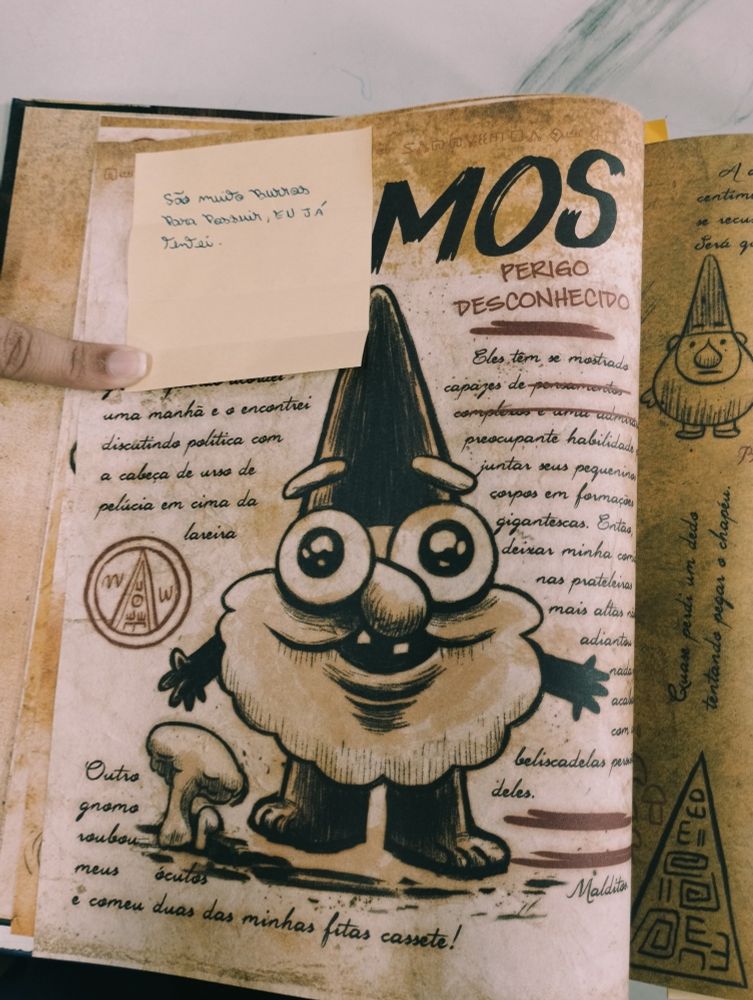 São muito Burros
Para Possuir, EU JÁ
Tentei.
MOS
PERIGO
DESCONHECIDO
uma manhã e o encontrei
discutindo política com
a cabeça de urso de
pelúcia em cima da
lareira
Eles têm se mostrado
capazes de pensamentos
complexos e uma
preocupante habilidade
juntar seus pequeninos
corpos em formações
gigantescas. Então,
deixar minha
nas prateleiras
mais altas
adiantou
nada
beliscadelas
deles.
Malditos
Outro
gnomo
roubou
meus óculos
e comeu duas das minhas fitas cassete!
se
Será
Quase perdi um dedo
tentando pegar o chapéu.